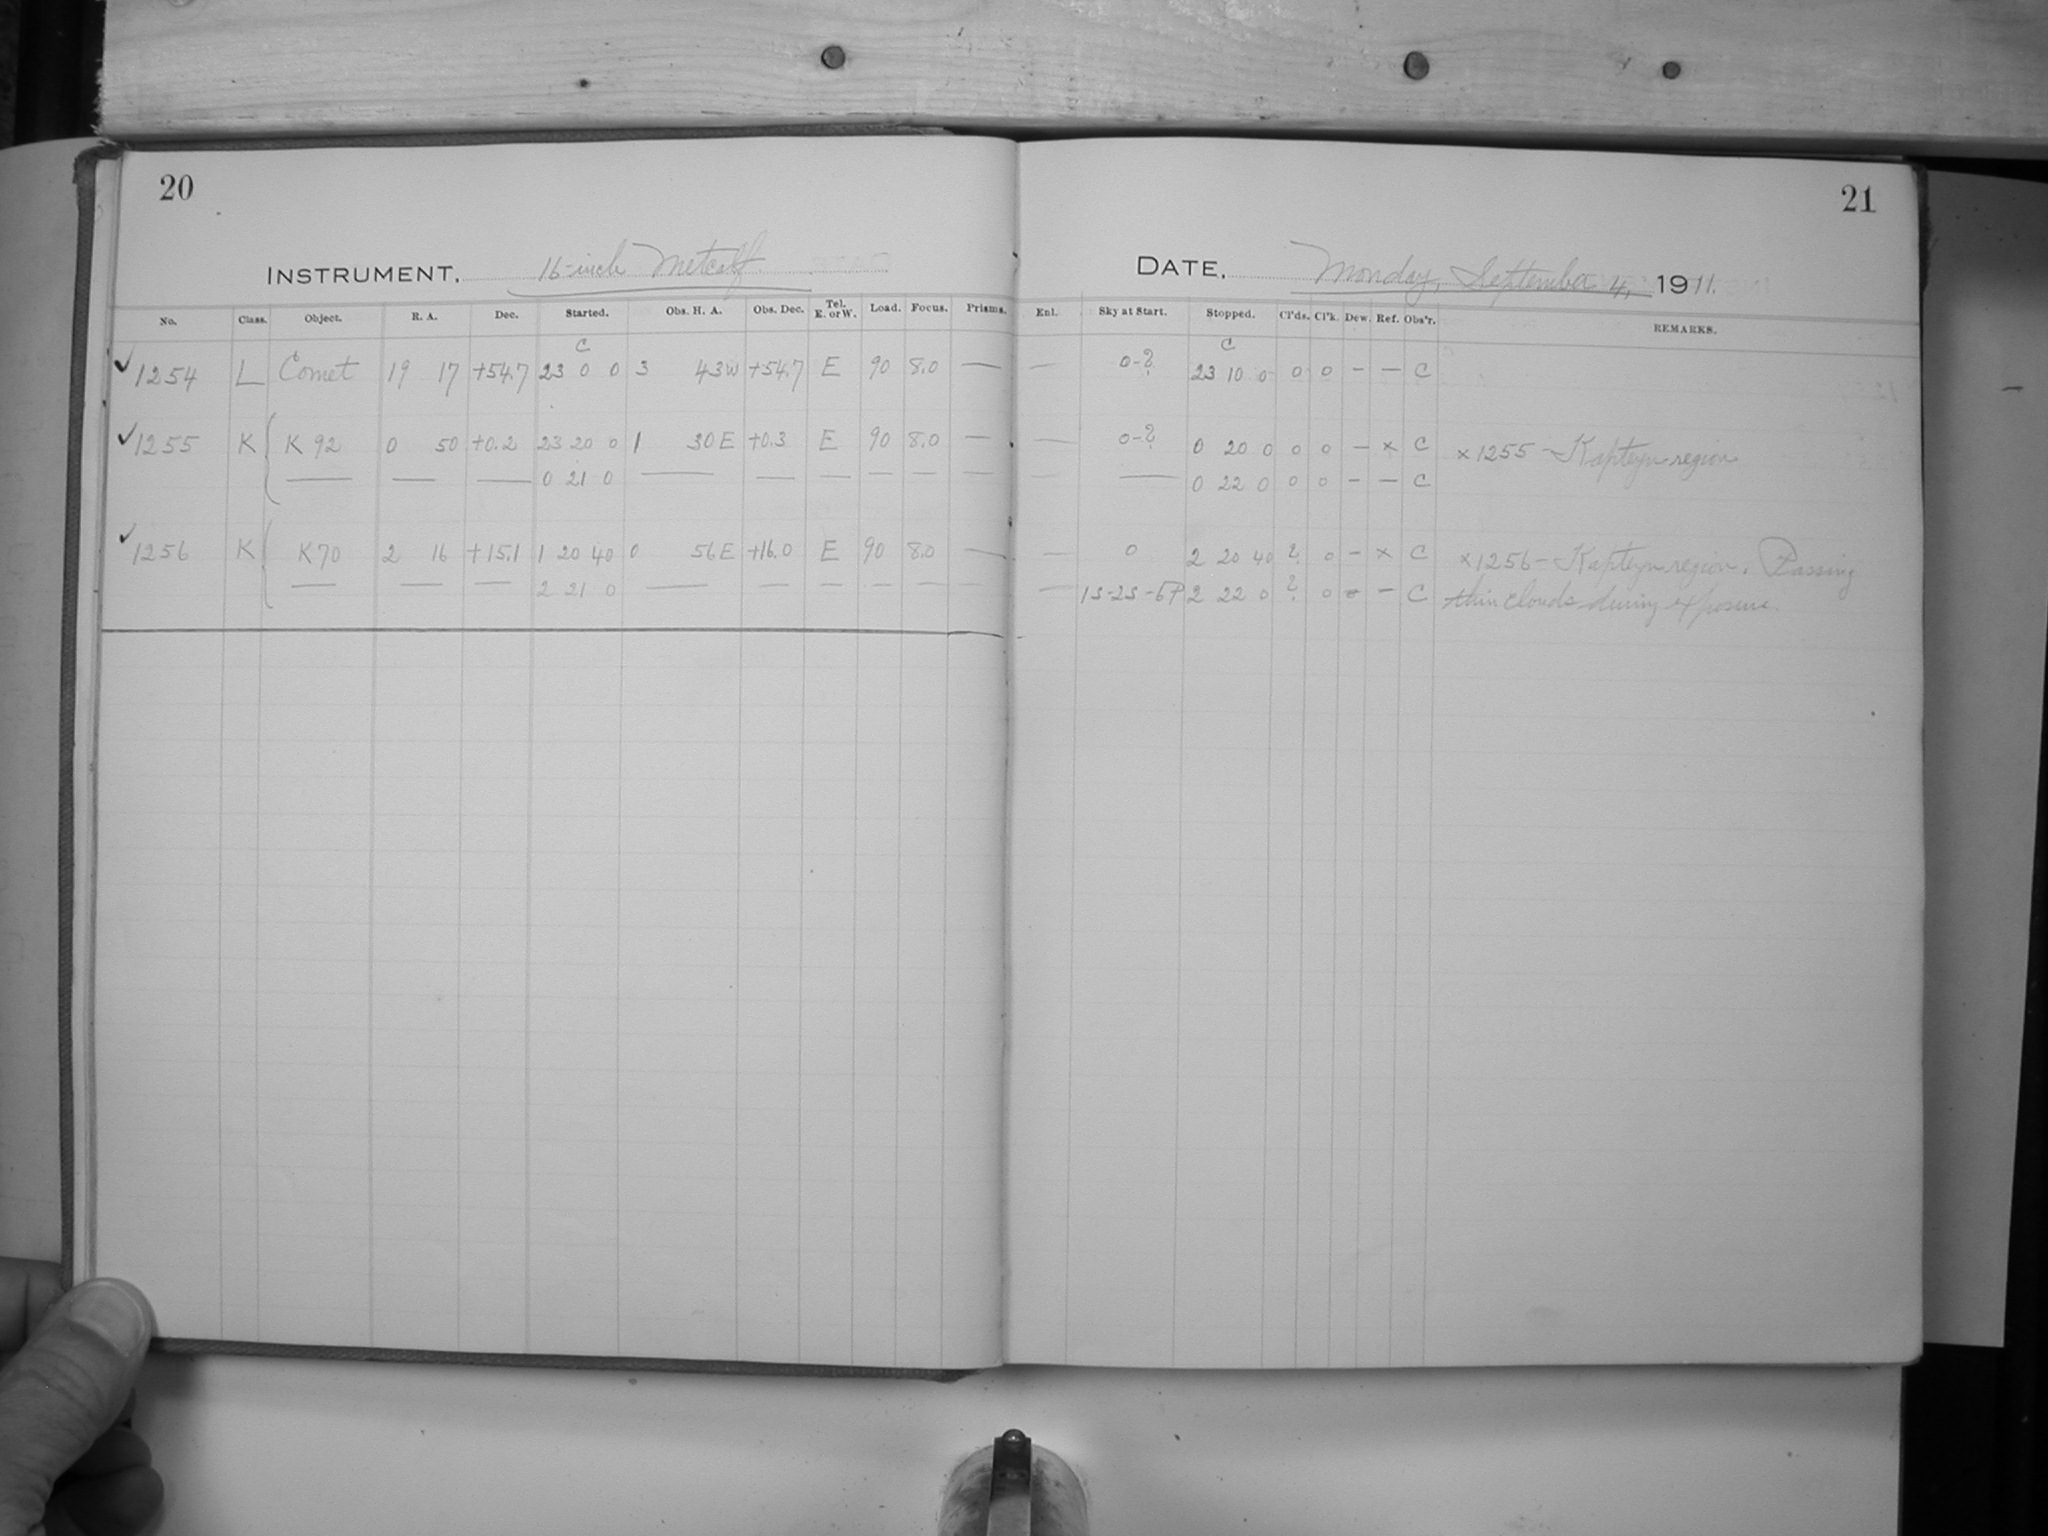 20
21
INSTRUMENT, 16-inch Metcalf
DATE, Monday, September 4, 1911.
No. Class. Object. R. A. Dec. Started. Obs. H. A. Obs. Dec. Tel. E. or W. Load. Focus. Prisms. Enl. Sky at Start. Stopped. Cl'ds. Cl'k. Dew. Ref. Obs'r. REMARKS.
C C
✓1254 L Comet 19 17 +54.7 23 0 0 3 43W +54.7 E 90 8.0 — — 0-? 23 10 0 0 0 - — C
✓1255 K K 92 0 50 +0.2 23 20 0 1 30E +0.3 E 90 8.0 — — 0-? 0 20 0 0 0 — x C x1255 — Kapteyn region
— — — 0 21 0 — — — — — — — — 0 22 0 0 0 — — C
✓1256 K K70 2 16 +15.1 1 20 40 0 56E +16.0 E 90 8.0 — — 0 2 20 40 ? 0 - x C x1256 — Kapteyn region. Passing
— — — 2 21 0 — — — — — — — 1S-2S-6P 2 22 0 ? 0 0 — C thin clouds during exposure.